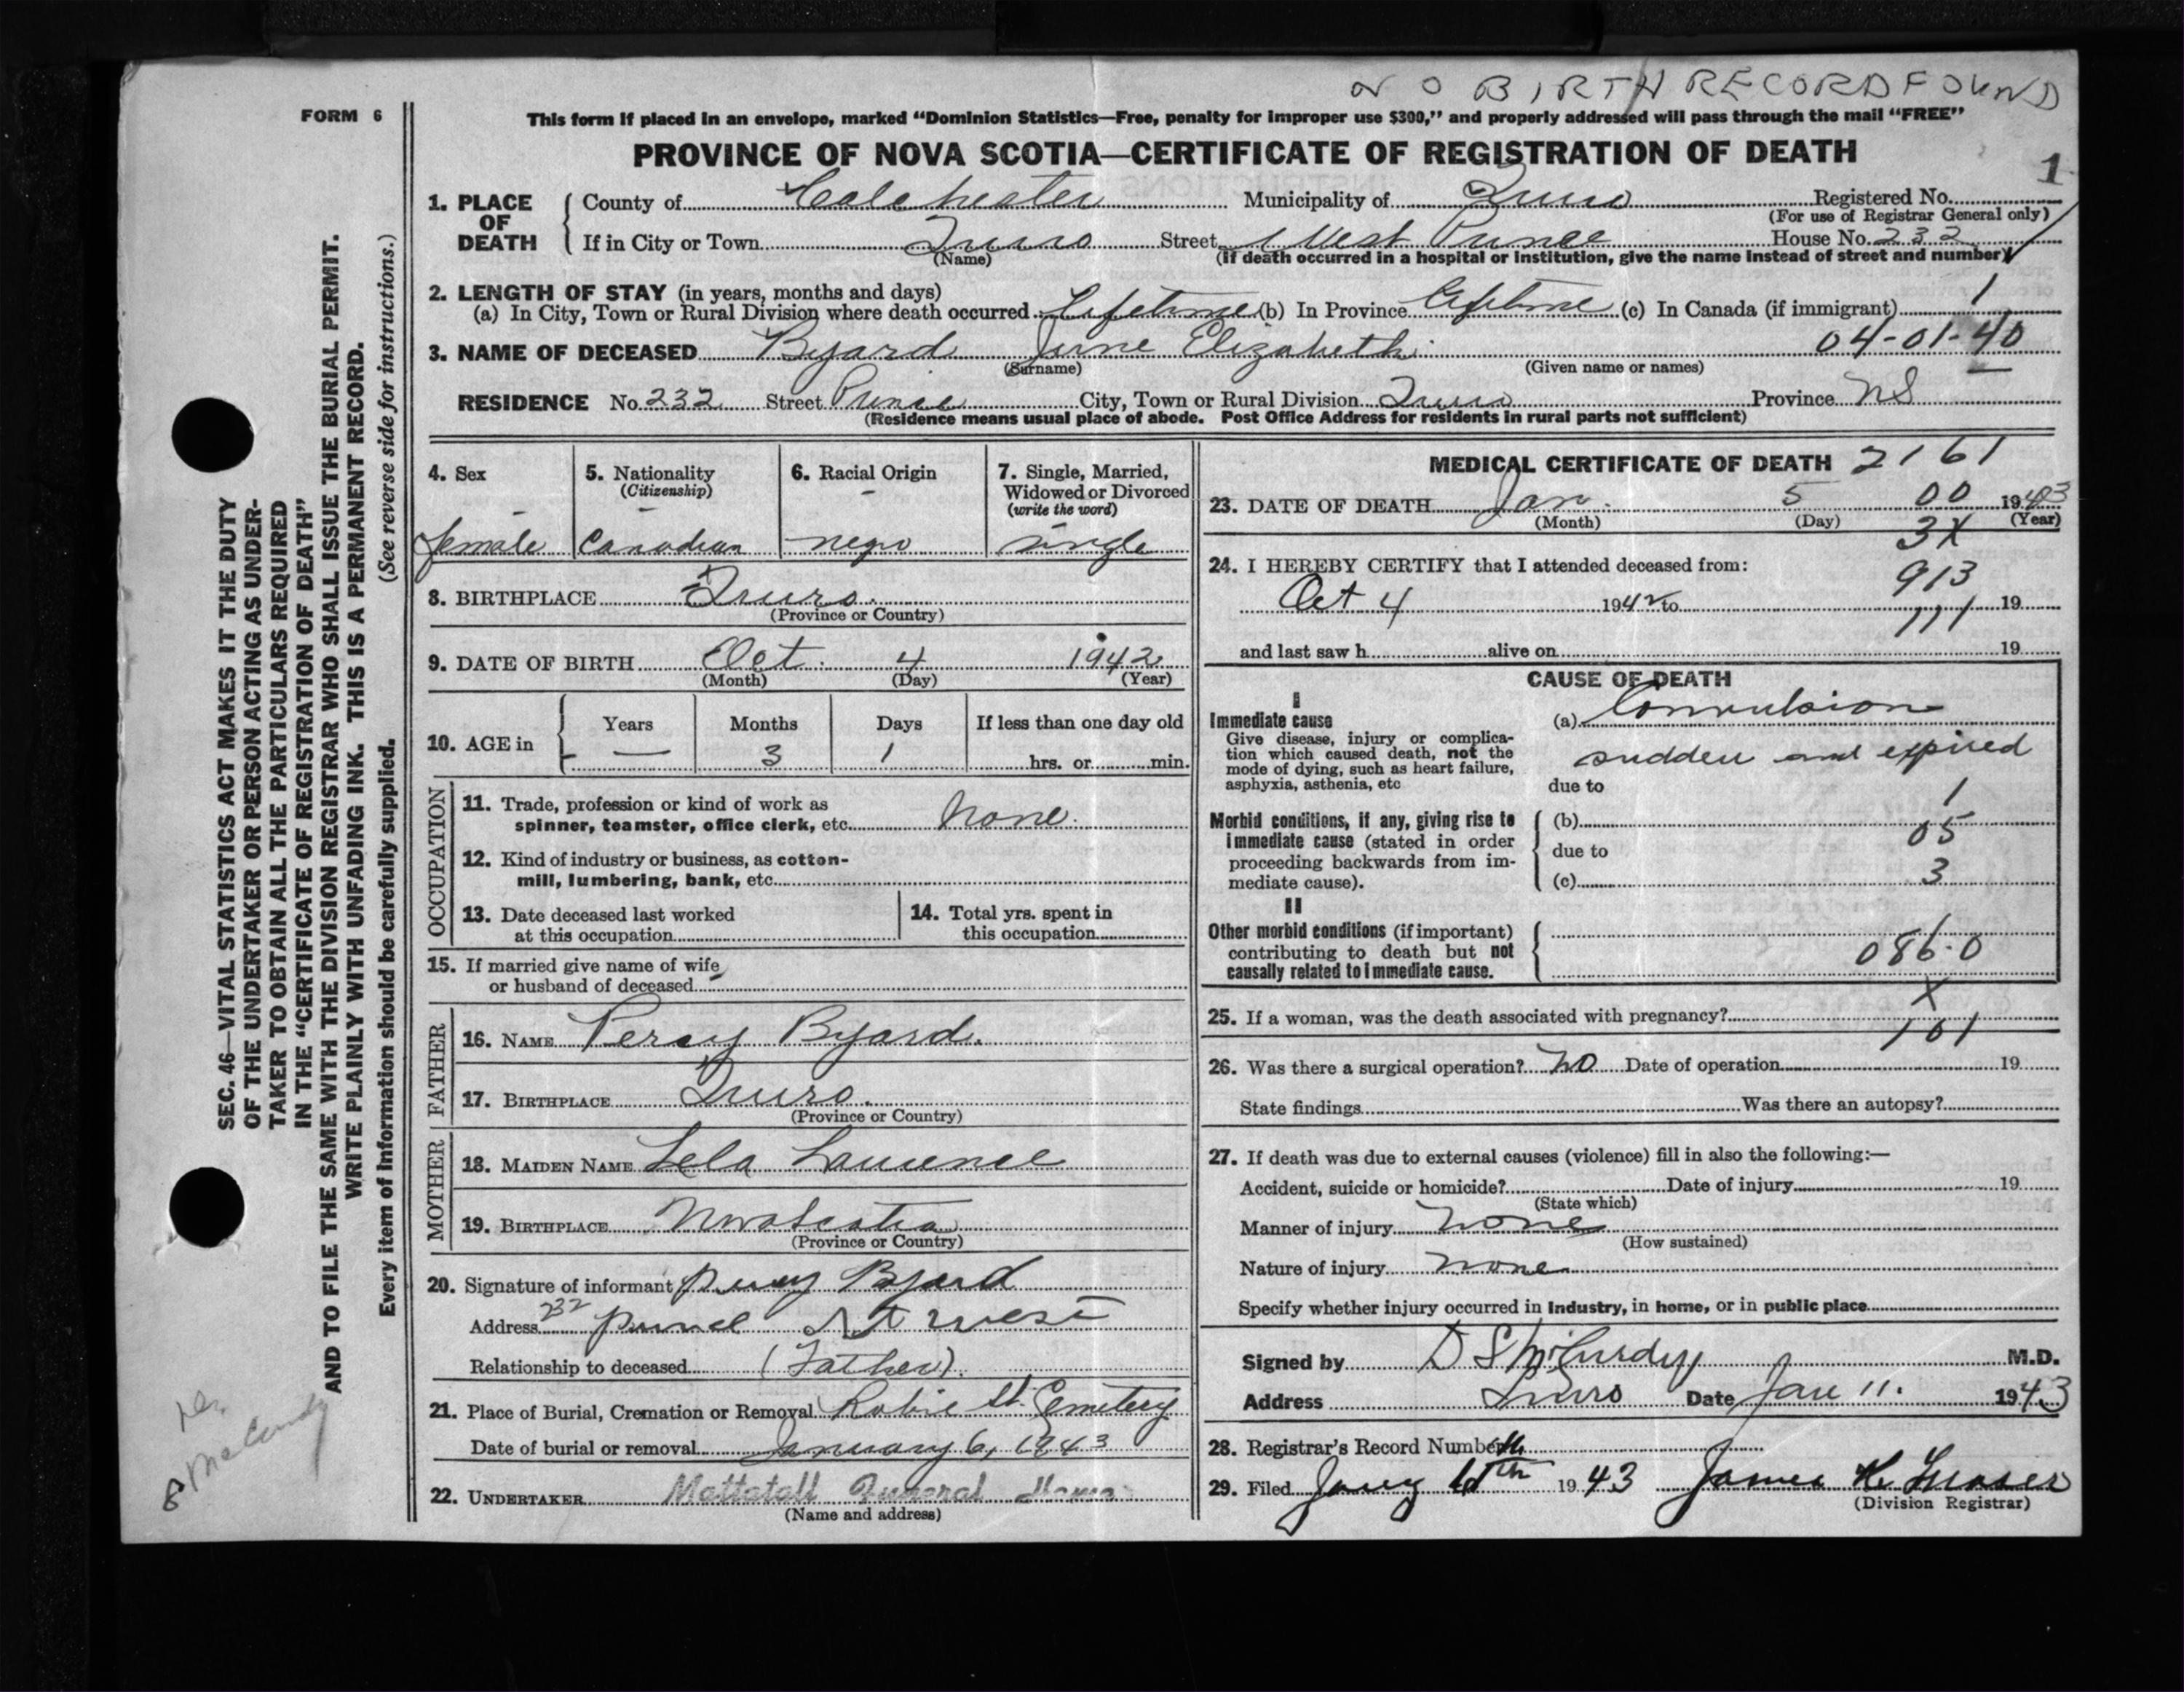 NO BIRTH RECORD FOUND
FORM 6
This form if placed in an envelope, marked “Dominion Statistics—Free, penalty for improper use $300,” and properly addressed will pass through the mail “FREE”
PROVINCE OF NOVA SCOTIA—CERTIFICATE OF REGISTRATION OF DEATH
1
1. PLACE OF DEATH
County of Colchester Municipality of Truro Registered No.
(For use of Registrar General only)
If in City or Town Truro Street West Prince House No. 232
(Name) (If death occurred in a hospital or institution, give the name instead of street and number)
2. LENGTH OF STAY (in years, months and days)
(a) In City, Town or Rural Division where death occurred Lifetime (b) In Province Lifetime (c) In Canada (if immigrant) 1
3. NAME OF DECEASED Byard June Elizabeth 04-01-40
(Surname) (Given name or names)
RESIDENCE No. 232 Street Prince City, Town or Rural Division Truro Province NS
(Residence means usual place of abode. Post Office Address for residents in rural parts not sufficient)
4. Sex
female
5. Nationality
(Citizenship)
Canadian
6. Racial Origin
negro
7. Single, Married,
Widowed or Divorced
(write the word)
single
8. BIRTHPLACE Truro.
(Province or Country)
9. DATE OF BIRTH Oct. 4 1942
(Month) (Day) (Year)
10. AGE in
Years Months Days If less than one day old
— 3 1 hrs. or min.
OCCUPATION
11. Trade, profession or kind of work as
spinner, teamster, office clerk, etc. None.
12. Kind of industry or business, as cotton-
mill, lumbering, bank, etc.
13. Date deceased last worked
at this occupation
14. Total yrs. spent in
this occupation
15. If married give name of wife
or husband of deceased
FATHER
16. NAME Percy Byard.
17. BIRTHPLACE Truro.
(Province or Country)
MOTHER
18. MAIDEN NAME Lela Laurence
19. BIRTHPLACE Nova Scotia
(Province or Country)
20. Signature of informant Percy Byard
Address 232 Prince St West
Relationship to deceased (Father).
21. Place of Burial, Cremation or Removal Robie St. Cemetery
Date of burial or removal January 6, 1943
22. UNDERTAKER Mattatall Funeral Home
(Name and address)
MEDICAL CERTIFICATE OF DEATH 2161
23. DATE OF DEATH Jan. 5 00 1943
(Month) (Day) (Year)
3X
24. I HEREBY CERTIFY that I attended deceased from:
913
Oct 4 1942 to 19
111
and last saw h alive on 19
CAUSE OF DEATH
I
Immediate cause
Give disease, injury or complica-
tion which caused death, not the
mode of dying, such as heart failure,
asphyxia, asthenia, etc
(a) Convulsion
sudden and expired
due to
1
Morbid conditions, if any, giving rise to
immediate cause (stated in order
proceeding backwards from im-
mediate cause).
(b)
05
due to
(c) 3
II
Other morbid conditions (if important)
contributing to death but not
causally related to immediate cause.
086.0
X
25. If a woman, was the death associated with pregnancy?
101
26. Was there a surgical operation? No Date of operation 19
State findings Was there an autopsy?
27. If death was due to external causes (violence) fill in also the following:—
Accident, suicide or homicide? Date of injury 19
(State which)
Manner of injury None
(How sustained)
Nature of injury None
Specify whether injury occurred in industry, in home, or in public place
Signed by D S McCurdy M.D.
Address Truro Date Jan 11. 1943
28. Registrar's Record Number
29. Filed Jany 1943 James K. Fraser
(Division Registrar)
SEC. 46—VITAL STATISTICS ACT MAKES IT THE DUTY
OF THE UNDERTAKER OR PERSON ACTING AS UNDER-
TAKER TO OBTAIN ALL THE PARTICULARS REQUIRED
IN THE “CERTIFICATE OF REGISTRATION OF DEATH”
AND TO FILE THE SAME WITH THE DIVISION REGISTRAR WHO SHALL ISSUE THE BURIAL PERMIT.
WRITE PLAINLY WITH UNFADING INK. THIS IS A PERMANENT RECORD.
Every item of information should be carefully supplied. (See reverse side for instructions.)
McCurdy